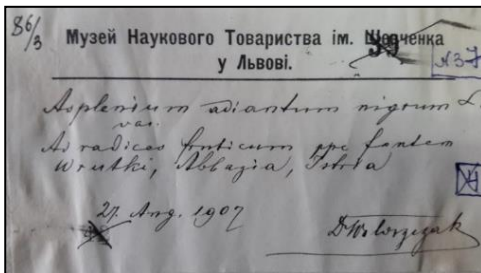 86/3
Музей Наукового Товариства ім. Шевченка
у Львові.
Asplenium adiantum nigrum L.
var.
Ad radices fruticum ppe fontem
Wrutki, Abbazia, Istria
27. Aug. 1907